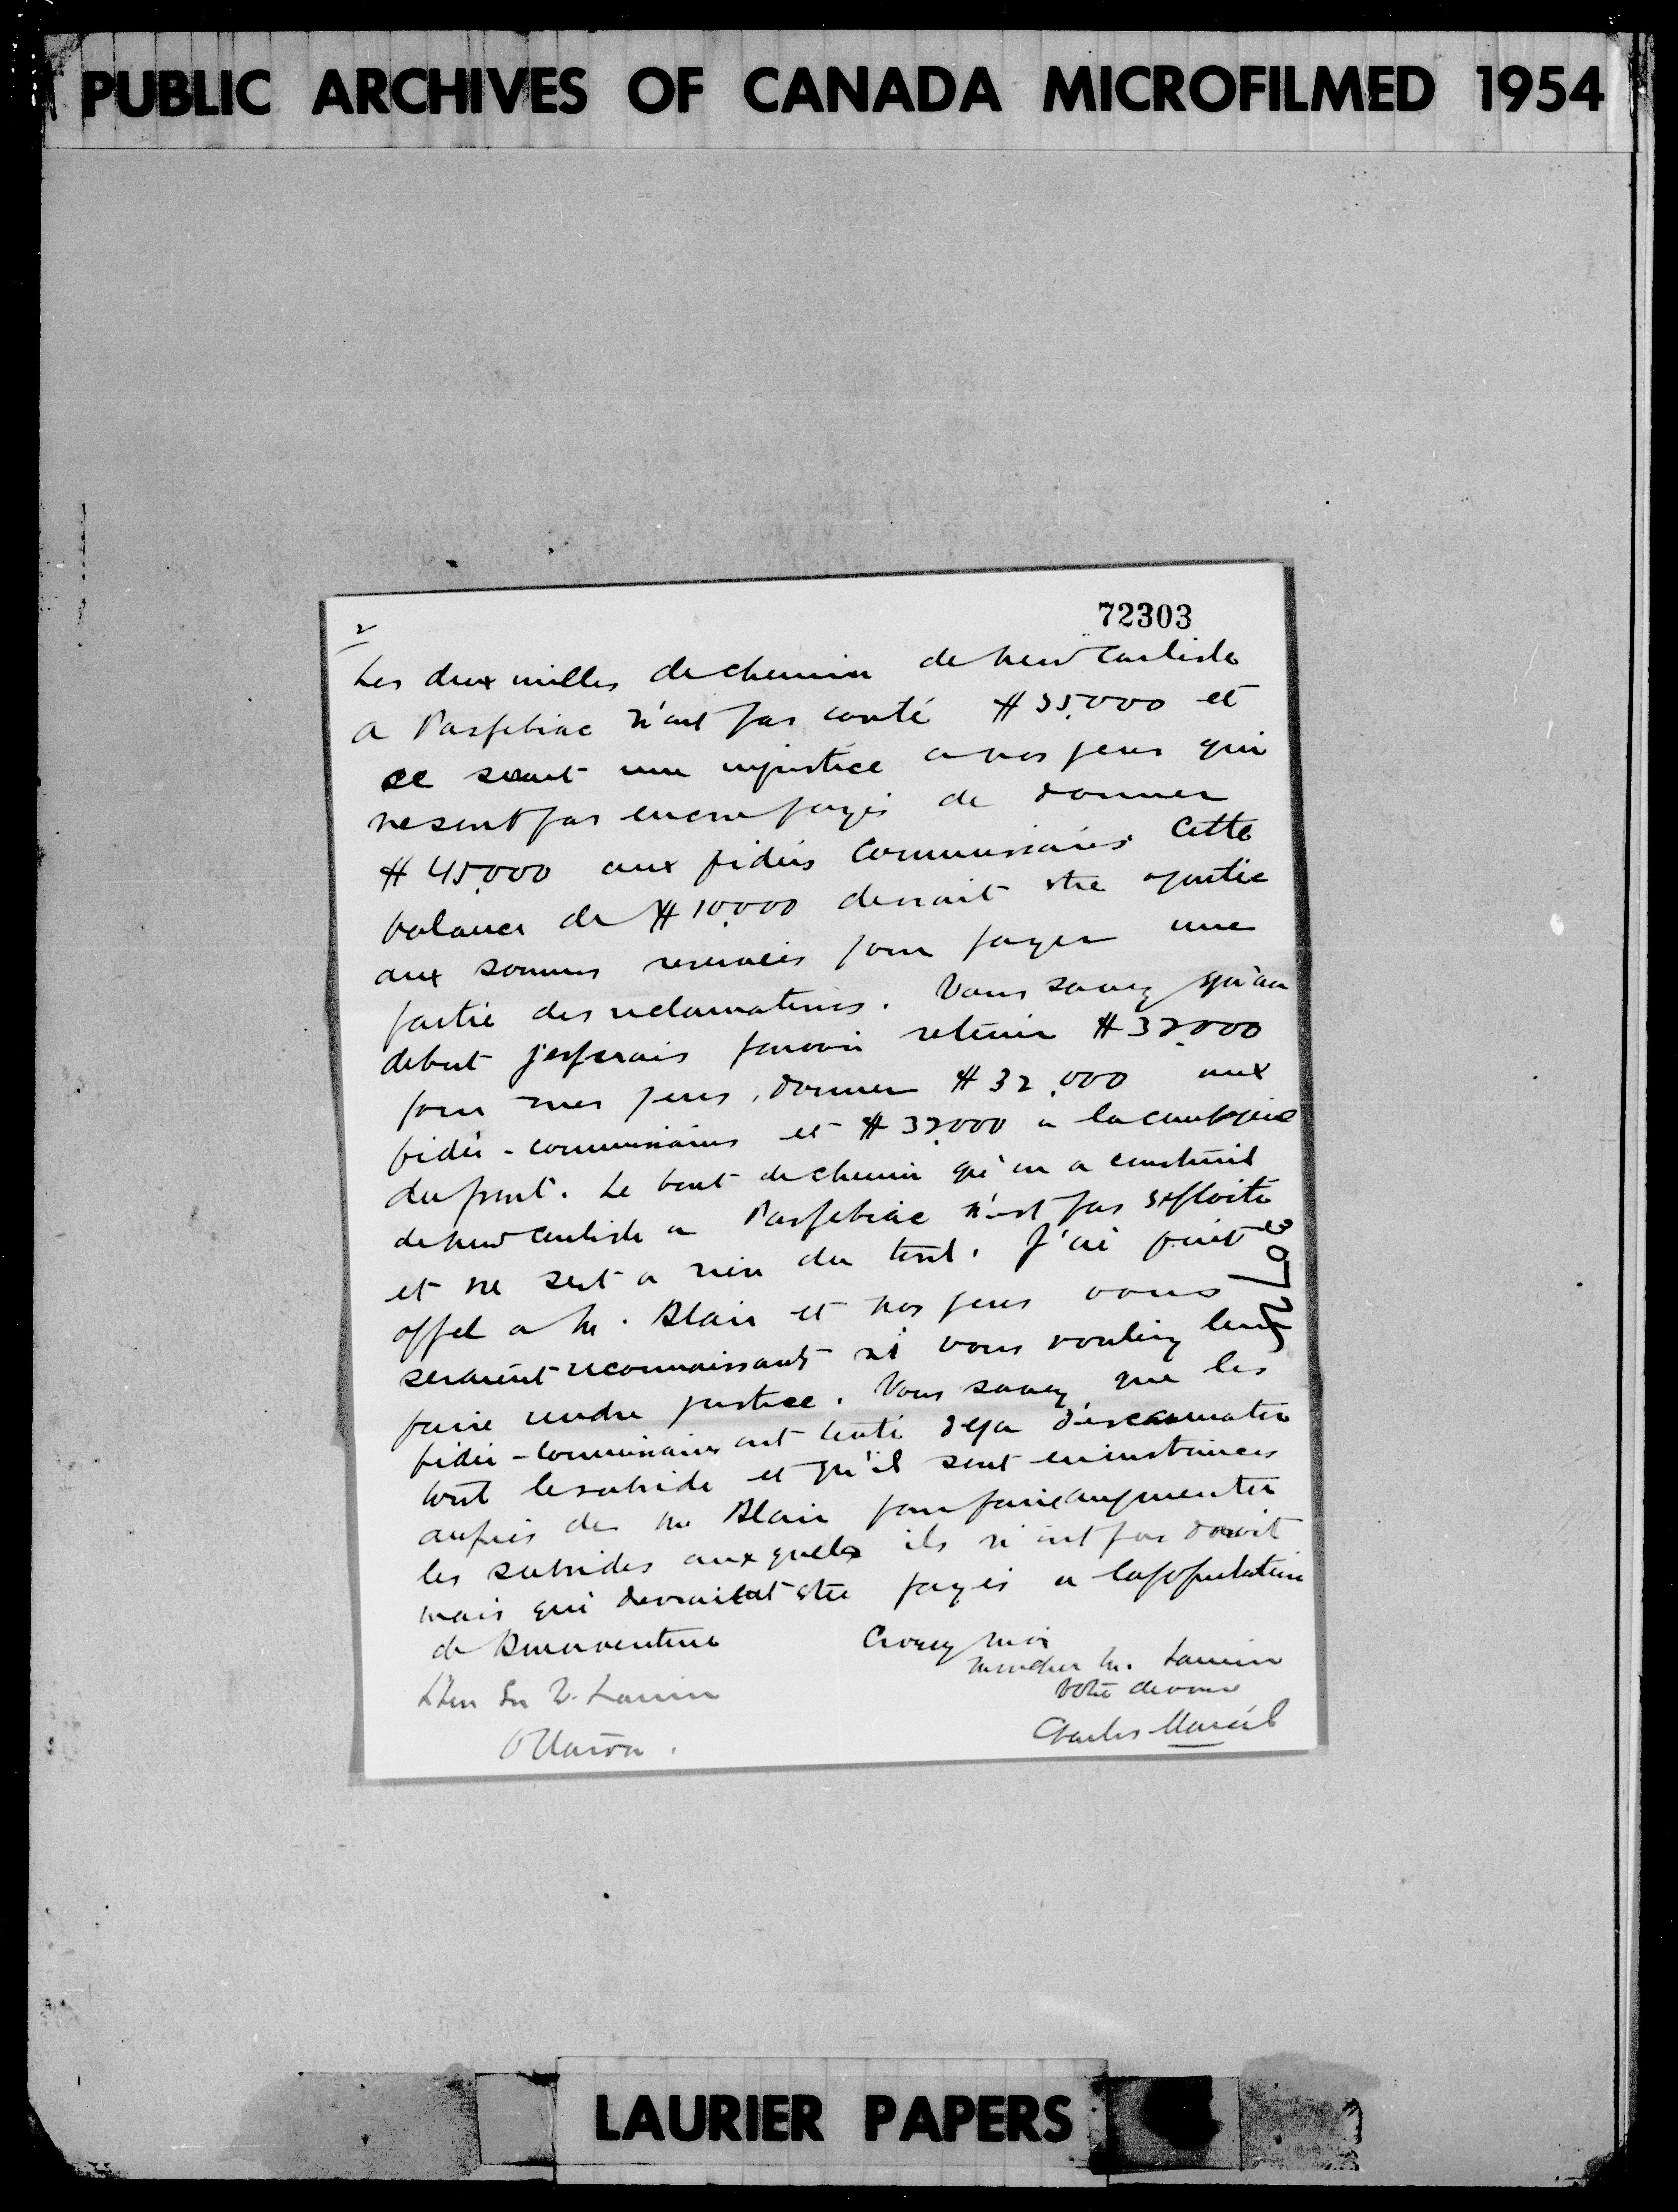 PUBLIC ARCHIVES OF CANADA MICROFILMED 1954
72303
2
Les deux milles de chemin de New Carlisle
a Paspebiac n'ont pas couté $35,000 et
ce serait une injustice a nos gens qui
ne sont pas encore payés de donner
$45,000 aux fidéis Commissaires. Cette
balance de $10,000 devrait etre ajoutée
aux sommes reservées pour payer une
partie des reclamations. Vous savez qu'au
debut j'esperais pouvoir retenir $32,000
pour mes gens, donner $32,000 aux
fidéi-commissaires et $32,000 a la compagnie
du pont. Le bout de chemin qu'on a construit
de New Carlisle a Paspebiac n'est pas exploité
et ne sert a rien du tout. J'ai fait
appel a M. Blair et nos gens vous
seraient reconnaissants si vous vouliez leur
faire rendre justice. Vous savez que les
fidéi-commissaires ont tenté deja d'escamoter
tout le subside et qu'il sont en instances
aupres de M. Blair pour faire augmenter
les subsides auxquels ils n'ont pas droit
mais qui devraient etre payés a la population
de Bonaventure
Croyez moi
Monsieur M. Laurier
Votre devoué
Charles Marcil
L'Hon Sir W. Laurier
Ottawa.
LAURIER PAPERS